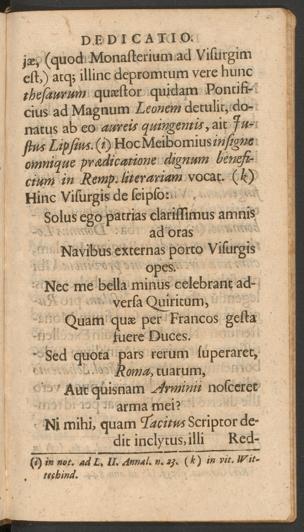 DEDICATIO.
jæ, (quod Monasterium ad Visurgim
est,) atq; illinc depromtum vere hunc
thesaurum quæstor quidam Pontifi-
cius ad Magnum Leonem detulit, do-
natus ab eo aureis quingentis, ait Ju-
stus Lipsius. (i) Hoc Meibomius insigne
omnique prædicatione dignum benefi-
cium in Remp. literariam vocat. (k)
Hinc Visurgis de seipso:
Solus ego patrias clarissimus amnis
ad oras
Navibus externas porto Visurgis
opes.
Nec me bella minus celebrant ad-
versa Quiritum,
Quam quæ per Francos gesta
fuere Duces.
Sed quota pars rerum superaret,
Roma, tuarum,
Aut quisnam Arminii nosceret
arma mei?
Ni mihi, quam Tacitus Scriptor de-
dit inclytus, illi Red-
(i) in not. ad L. II. Annal. n. 23. (k) in vit. Wit-
techind.